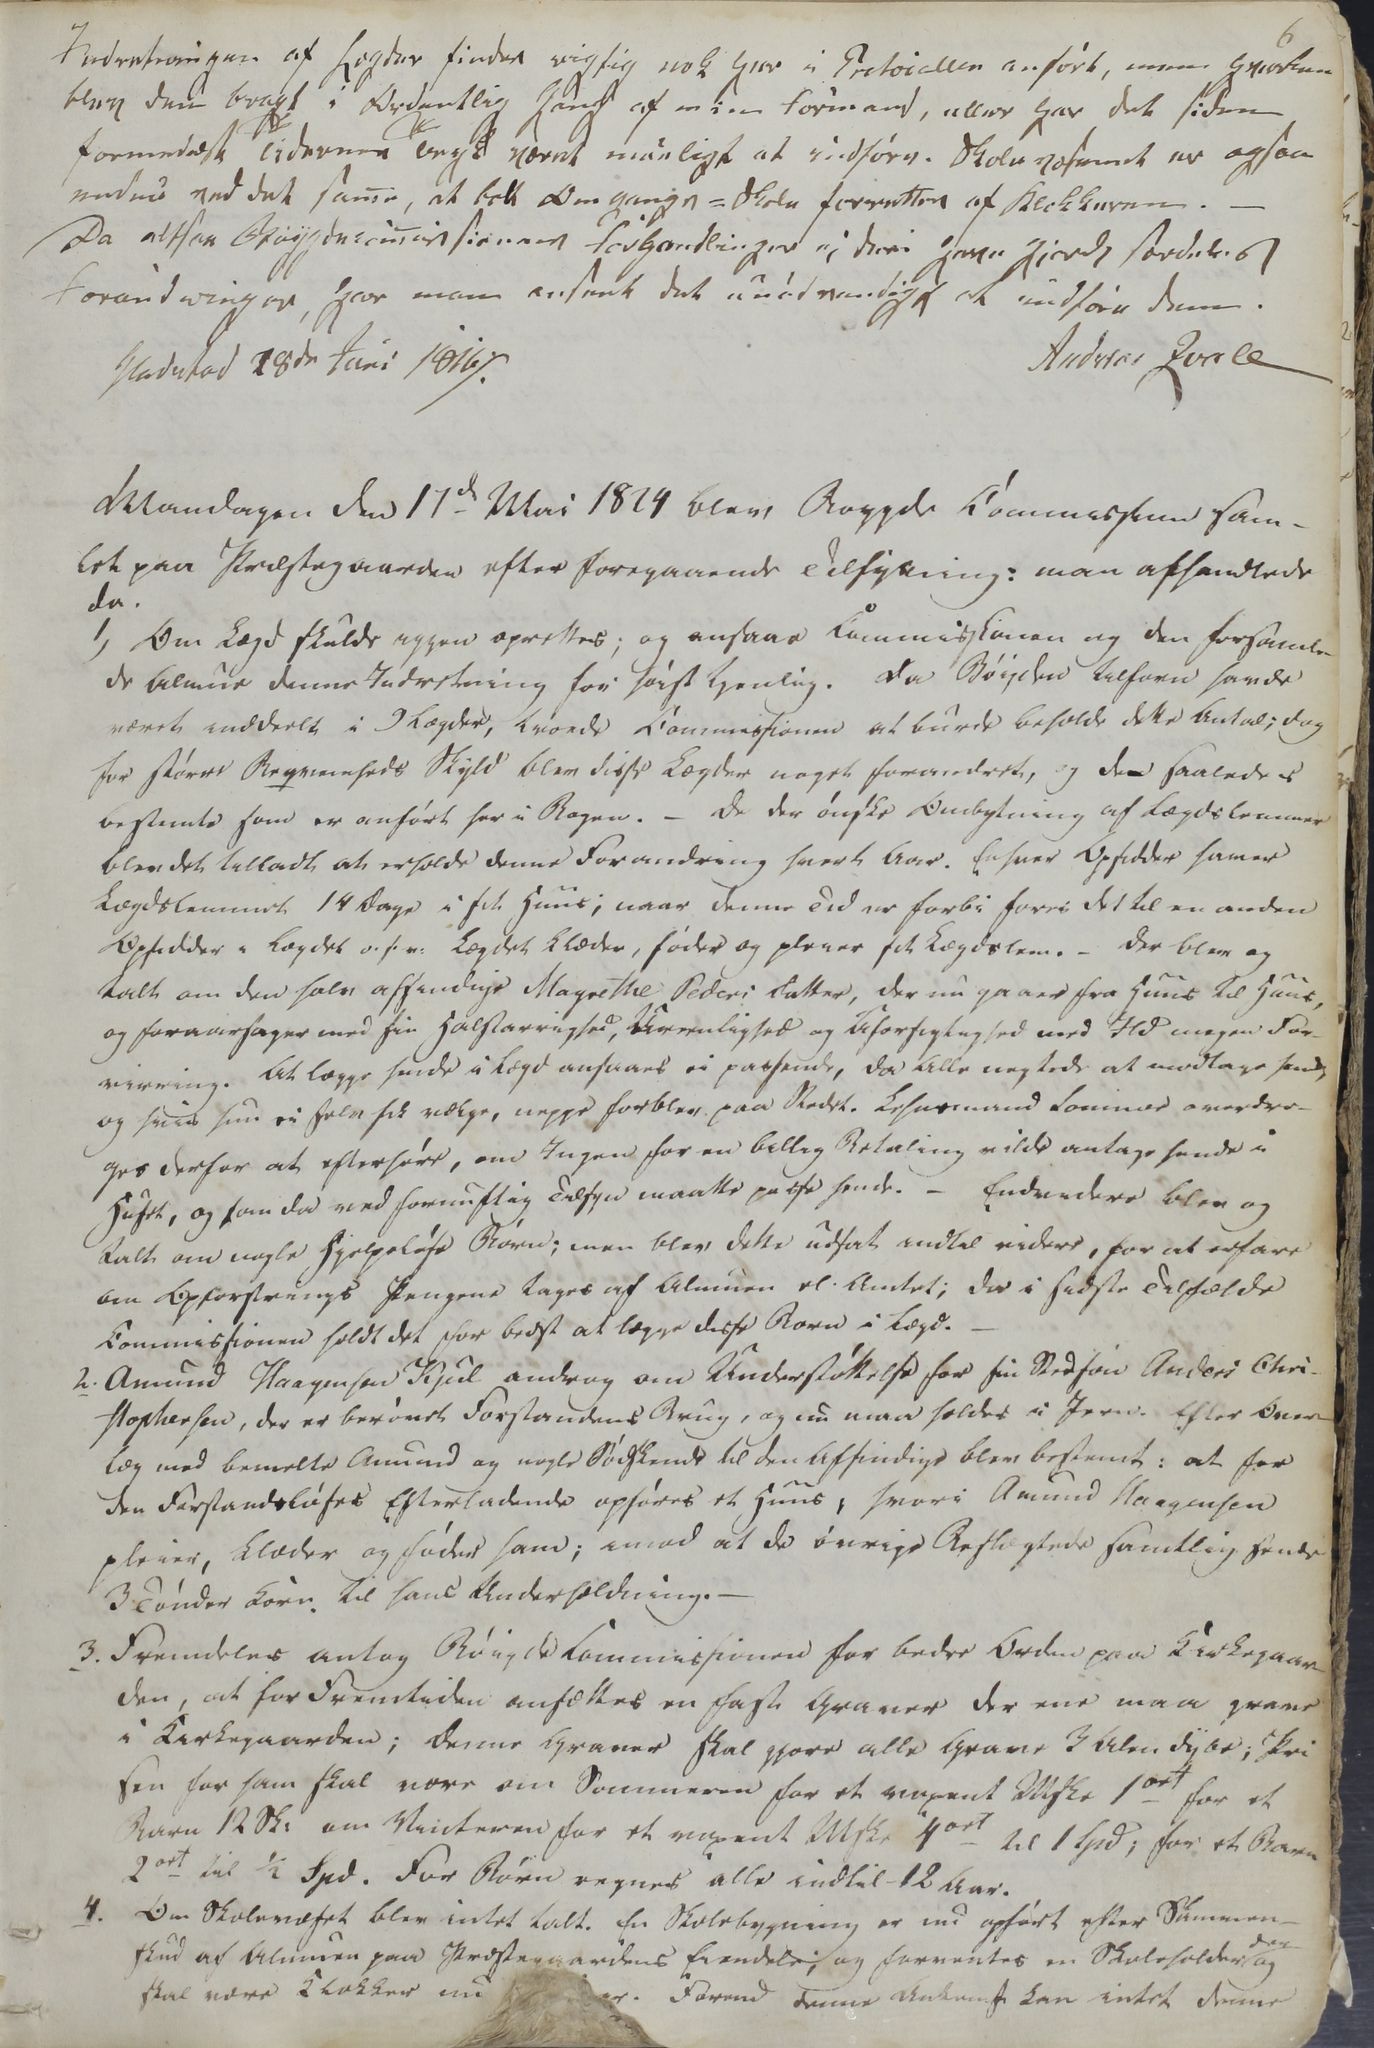 6
Indretningen af Legder findes rigtig nok her i Protocollen anført, men hverken
blev den bragt i Ordentlig Gang af min Formand, eller har det siden
formedelst Tidernes Tryk været mueligt at indføre. Skolevæsenet er ogsaa
endnu ved det samme, at Omgangs-Skole forrettes af Klokkeren. —
Da altsaa Bøygdecommissionens Forhandlinger ej deri have gjordt særdeles
Forandringer, har man anseet det unødvendigt at indføre dem.
28de Juni 1816. Andreas
Mandagen den 17d Mai 1824 blev Bøygde Commissionen sam-
let paa Præstegaarden efter foregaaende Tilsigning: man afhandlede
da.
1, Om Lægd skulde iggjen oprettes; og ansaae Commissionen og den forsamle-
de Almue denne Indretning for høist tjenlig. Da Bøigden tilforn havde
været inddeelt i 9 Lægder, troede Commissionen at burde beholde dette Antal; dog
for større Beqvemheds Skyld blev disse Lægder noget forandret, og den saaledes
bestemte som er anført her i Bogen. – De der ønske Ombytning af Lægdslemmer
blev det tilladt at erholde denne Forandring hvert Aar. Enhver Opsidder haver
Lægdslemmet 14 Dage i sit Huus; naar denne Tid er forbi føres det til en anden
Opsidder i Lægdet o.s.v. Lægdet klæder, føder og pleier sit Lægdslem. – Der blev og
talt om den halv afsindige Magrethe Peders Datter, der nu gaaer fra Huus til Huus,
og foraarsager med sin Halstarrighed, Ureenlighed og Uforsigtighed med Ild megen For-
virring. At lægge hende i Lægd ansaaes ei passende, da Alle negtede at modtage hende,
og hvis hun ei selv fik vælge, neppe forblev paa Stedet. Lehnsmand overdro-
ges derfor at efterhøre, om Ingen for en billig Betaling vilde antage hende i
Huset, og som da ved fornuftig Tilsyn maatte passe hende. – Endvidere blev og
talt om nogle hjelpeløse Børn; men blev dette udsat indtil videre, for at erfare
om Opfostrings Pengene tages af Almuen el. Amtet; da i sidste Tilfælde
Commissionen holdt det for bedst at lægge disse Børn i Lægd. —
2. Amund Haagensen Kjul androg om Understøttelse for sin Stedsøn Anders Chri-
stophersen, der er berøvet Forstandens Brug, og nu maa holdes i Jern. Efter Over-
læg med bemelte Amund og nogle Sødskende til den Afsindige blev bestemt: at for
den Forstandsløses Efterladende opføres et Huus, hvori Amund Haagensen
pleier, klæder og føder ham; imod at de øvrige Beslægtede samtlig sende
3 Tønder Korn til hans Underholdning. —
3. Fremdeles antog Bøigde Commissionen for bedre Orden paa Kirkegaar-
den, at for Fremtiden ansættes en fast Graver der ene maa grave
i Kirkegaarden; denne Graver skal gjøre alle Grave 3 Alen dybe; Pri
sen for ham skal være om Sommeren for et voxent Mske 1 ort for et
Barn 12 Sk: om Vinteren for et voxent Mske 4 ort til 1 Spd; for et Barn
2 ort til ½ Spd. For Børn regnes alle indtil 12 Aar.
4. Om Skolevæset blev intet talt. En Skolebygning er nu opført efter Sammen-
skud af Almuen paa Præstegaardens Eiendele, og forventes en Skoleholder der og
skal være Klokker nu Forend denne Ankomst kan intet denne